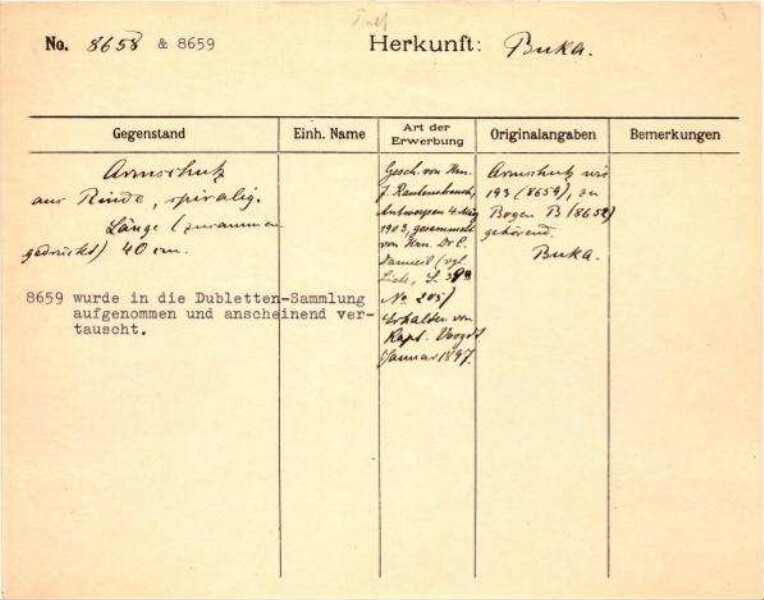 No. 8658 & 8659 Herkunft: Buka.
Gegenstand Einh. Name Art der Erwerbung Originalangaben Bemerkungen
Armschutz
aus Rinde, spiralig.
Länge (zusammen
gedrückt) 40 cm.
8659 wurde in die Dubletten-Sammlung
aufgenommen und anscheinend ver-
tauscht.
Gesch. von Hrn.
J. Rautenstrauch,
Antwerpen 4. März
1903, gesammelt
von Hrn. Dr C.
Danneil (vgl.
Liste, S.
No 205)
Erhalten von
Kapt. Voogdt
Januar 1897.
Armschutz wie
193 (8659), zu
Bogen B (8652)
gehörend.
Buka.